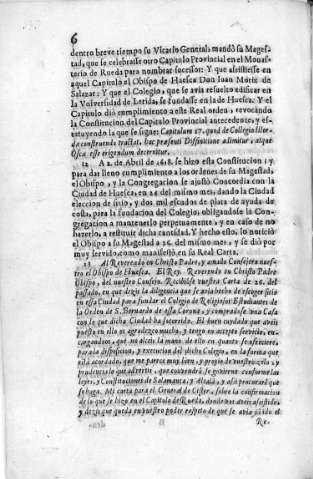 6
dentro breve tiempo su Vicario General: mandò su Mages-
tad, que se celebrasse otro Capitulo Provincial en el Monas-
terio de Rueda para nombrar sucessor: Y que assistiesse en
aquel Capitulo el Obispo de Huesca Don Juan Moriz de
Salazar: Y que el Colegio, que se avia resuelto edificar en
la Vniversidad de Lerida, se fundasse en la de Huesca. Y el
Capitulo diò cumplimiento a este Real orden, revocando
la Constitucion del Capitulo Provincial antecedente, y es-
tuyendo la que se sigue: Capitulum 17. quod de Collegio Iller-
dæ construendo tractat, hac præsenti Diffinitione aboletur, atque
Oscæ esse erigendum decernitur.
12 A 2. de Abril de 1618. se hizo esta Constitucion; y
para dar lleno cumplimiento a los ordenes de su Magestad,
el Obispo, y la Congregacion se ajustò Concordia con la
Ciudad de Huesca, en 24. del mismo mes, dando la Ciudad
eleccion de sitio, y dos mil escudos de plata de ayuda de
costa, para la fundacion del Colegio, obligandose la Con-
gregacion a mantenerlo perpetuamente, y en caso de no
hazerlo, a restituir dicha cantidad. Y hecho esto, lo noticiò
el Obispo a su Magestad a 26. del mismo mes, y se diò por
muy servido, como manifestò en su Real Carta.
13 Al Reverendo en Christo Padre, y amado Consejero nues-
tro el Obispo de Huesca. El Rey. Reverendo en Christo Padre
Obispo, del nuestro Consejo. Recibiòse vuestra Carta de 26. del
passado, en que dezis la diligencia que se avia hecho de escoger sitio
en essa Ciudad para fundar el Colegio de Religiosos Estudiantes de
la Orden de S. Bernardo de essa Corona, y comprado se una Casa
con lo que dicha Ciudad ha socorrido. El buen cuydado que aveis
puesto en ello os agradezco mucho, y tengo en accepto servicio, en-
cargandoos, que no alceis la mano de ello en quanto se ofreciere,
para la disposicion, y execucion del dicho Colegio, en la forma que
està acordado, que me parece muy bien, y propio de vuestro zelo, y
prudencia lo que advertis, que convendrà se govierne conforme las
leyes, y Constituciones de Salamanca, y Alcalà, y assi procurarè que
se haga. Mi carta para el General de Cister, sobre la confirmacion
de lo que se hizo en el Capitulo de Rueda, donde vos aveis assistido,
y dezis que queda en vuestro poder respeto de que se avia pedido el
Re-